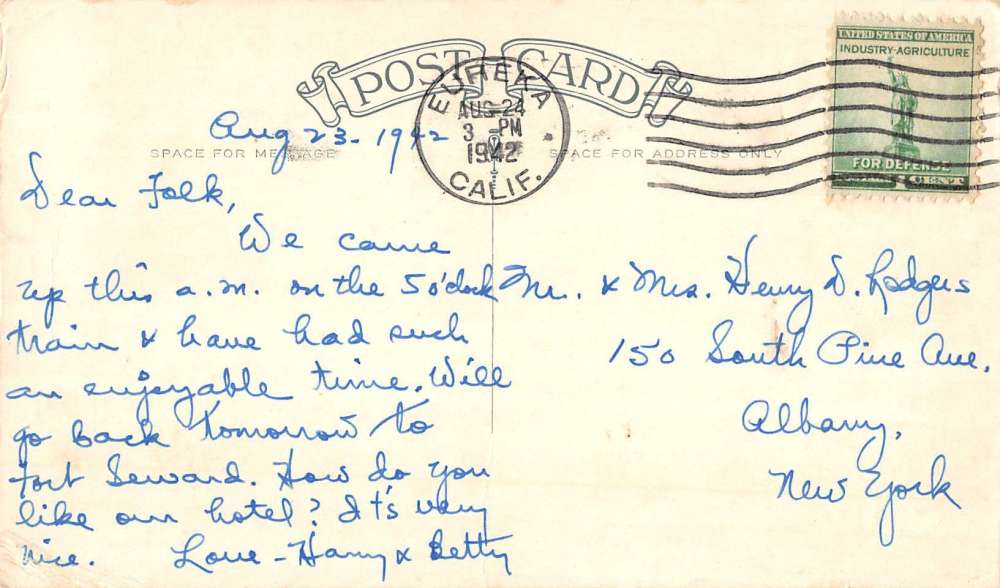 POST CARD
UNITED STATES OF AMERICA
INDUSTRY-AGRICULTURE
FOR DEFENSE
1 CENT
EUREKA
AUG 24
3 PM
1942
CALIF.
SPACE FOR MESSAGE
SPACE FOR ADDRESS ONLY
Aug 23-1942
Dear Folk,
We came
up this a.m. on the 5 o'clock
train & have had such
an enjoyable time. Will
go back tomorrow to
Fort Seward. How do you
like our hotel? It's very
nice. Love-Harry & Betty
Mr. & Mrs. Henry D. Rodgers
150 South Pine Ave.
Albany,
New York